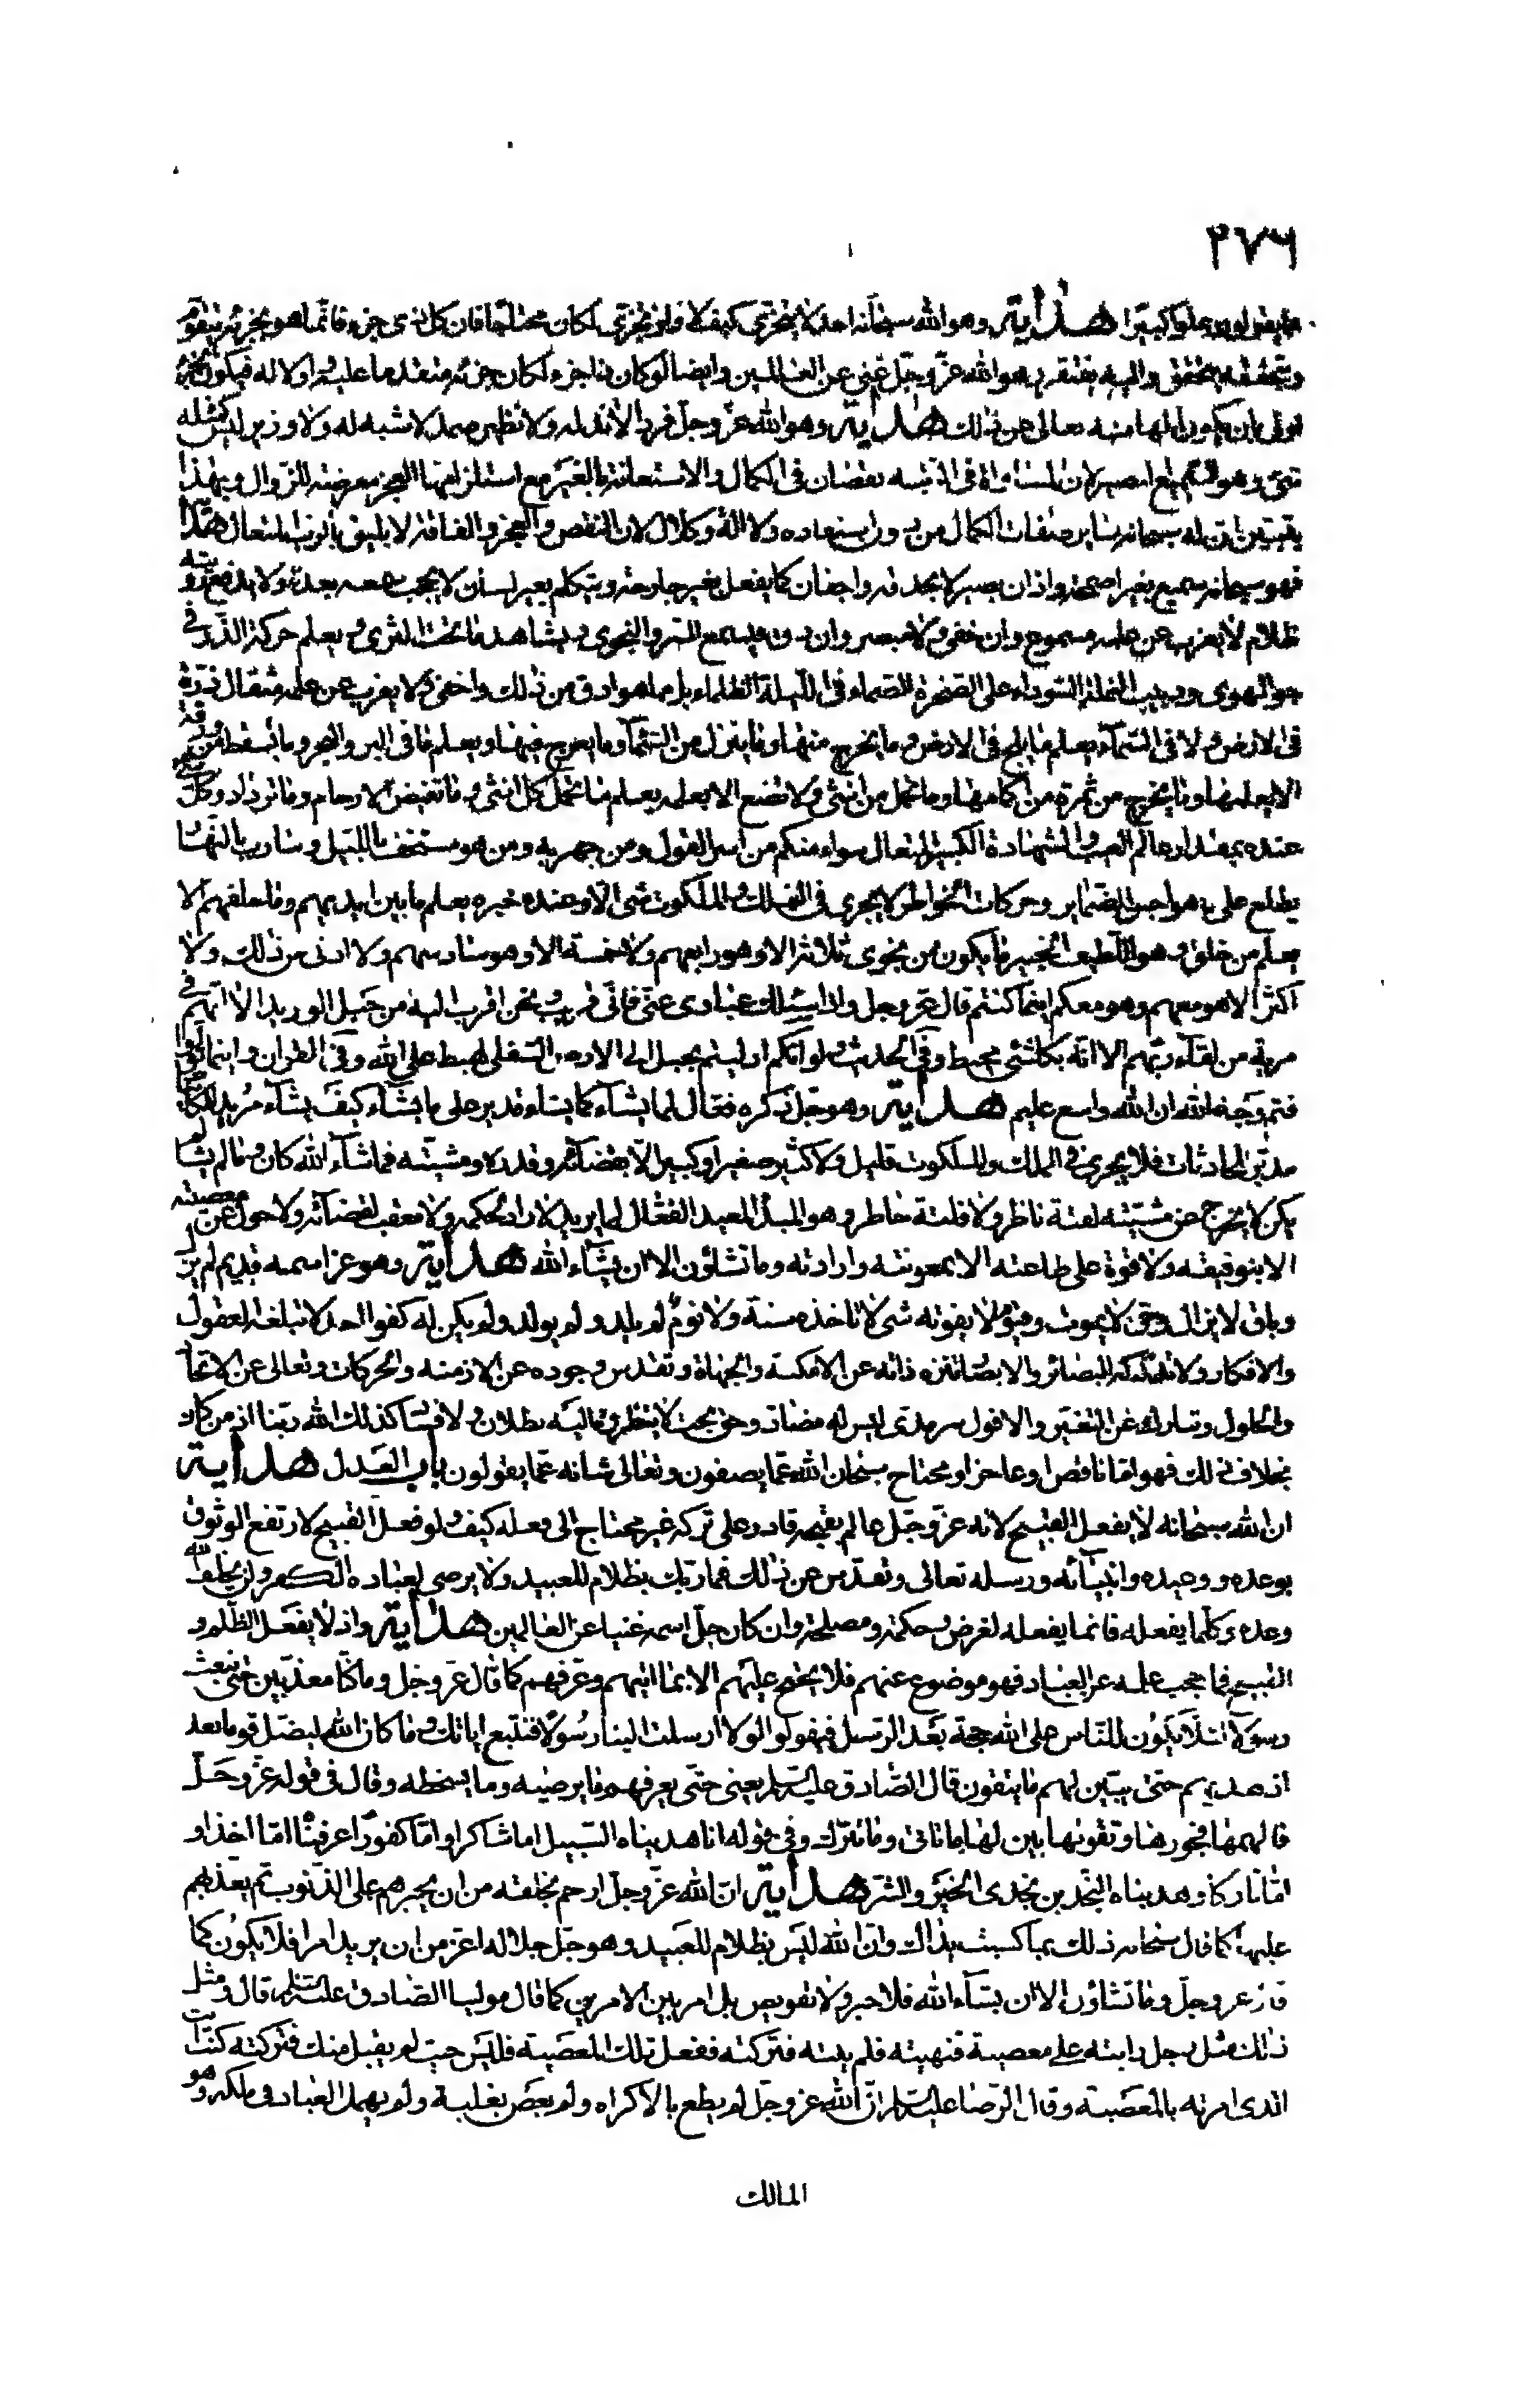 ٢٧٦
عما يقولون علوا كبيرا هداية وهو الله سبحانه احد لا يتجزى كيف لا فلو تجزى لكان محتاجا فان كل ذى جزء فانما هو بجزئه يتقوم
وبتحققه يتحقق واليه يفتقر وهو الله عز وجل غنى عن العالمين وايضا لو كان ذا جزء لكان جزئه متقدما عليه واولا له فيكون الجزء
اولى بان يكون الها منه تعالى عن ذلك هداية وهو الله عز وجل فرد لا ند له ولا نظير صمد لا شبه له ولا وزير ليس كمثله
شئ وهو السميع البصير لان المساواة فى الرتبة نقصان فى الكمال والاستعانة بالغير مع استلزامها العجز معرضة للزوال وبهذا
يتبين ان له سبحانه ساير صفات الكمال من دون استفادة ولا الة وكلال لان النقص والعجز والفاقة لا يليق بالرب المتعال هذا
فهو سبحانه سميع بغير اصمخة واذان بصير لا بحدقة واجفان كما يفعل بغير جارحة ويتكلم بغير لسان لا يحجب سمعه بعد ولا يدفع رؤيته
ظلام لا يعزب عن علمه مسموع وان خفى ولا مبصر وان دق فيسمع السر والنجوى ويشاهد ما تحت الثرى ويعلم حركة الذر فى
جو الهوى ودبيب النملة السوداء على الصخرة الصماء فى الليلة الظلماء بل ما هو ادق من ذلك واخفى لا يعزب عن علمه مثقال ذرة
فى الارض ولا فى السماء يعلم ما يلج فى الارض وما يخرج منها وما ينزل من السماء وما يعرج فيها ويعلم ما فى البر والبحر وما تسقط من ورقة
الا يعلمها وما يخرج من ثمرة من اكمامها وما تحمل من انثى ولا تضع الا بعلمه يعلم ما تحمل كل انثى وما تغيض الارحام وما تزداد وكل شئ
عنده بمقدار عالم الغيب والشهادة الكبير المتعال سواء منكم من اسر القول ومن جهر به ومن هو مستخف بالليل وسارب بالنهار
يطلع على هواجس الضماير وحركات الخواطر لا يجرى فى الملك والملكوت شئ الا وعنده خبره يعلم ما بين ايديهم وما خلفهم الا
يعلم من خلق وهو اللطيف الخبير ما يكون من نجوى ثلاثة الا هو رابعهم ولا خمسة الا وهو سادسهم ولا ادنى من ذلك ولا
اكثر الا هو معهم وهو معكم اينما كنتم قال عز وجل واذا سئلك عبادى عنى فانى قريب ونحن اقرب اليه من حبل الوريد الا انهم فى
مرية من لقاء ربهم الا انه بكل شئ محيط وفى الحديث لو انكم ادليتم بحبل الى الارض السفلى لهبط على الله وفى القران واينما تولوا
فثم وجه الله ان الله واسع عليم هداية وهو جل ذكره فعال لما يشاء كما يشاء قدير على ما يشاء كيف يشاء مريد للكائنات
مدبر للحادثات فلا يجرى فى الملك والملكوت قليل ولا كثير صغير او كبير الا بقضائه وقدره ومشيته فما شاء الله كان وما لم يشا لم
يكن لا يخرج عن مشيته لفتة ناظر ولا فلتة خاطر وهو المبدئ المعيد الفعال لما يريد لا راد لحكمه ولا معقب لقضائه ولا حول عن معصيته
الا بتوفيقه ولا قوة على طاعته الا بمعونته وارادته وما تشاؤن الا ان يشاء الله هداية وهو عز اسمه قديم لم يزل
وباق لا يزال وحى لا يموت وقيوم لا يفوته شئ لا تاخذه سنة ولا نوم لم يلد ولم يولد ولم يكن له كفوا احد لا تبلغه العقول
والافكار ولا تدركه البصائر والابصار تنزه ذاته عن الامكنة والجهات وتقدس وجوده عن الازمنة والحركات وتعالى عن الاتحاد
والحلول وتبارك عن التغير والافول سرمدى ليس له مضاد وحق بحت لا يتطرق اليه بطلان ولا فساد كذلك الله ربنا اذ من كان
بخلاف ذلك فهو اما ناقص او عاجز او محتاج سبحان الله عما يصفون وتعالى شانه عما يقولون باب العدل هداية
ان الله سبحانه لا يفعل القبيح لانه عز وجل عالم بقبحه قادر على تركه غير محتاج الى فعله كيف ولو فعل القبيح لارتفع الوثوق
بوعده ووعيده وانبيائه ورسله تعالى وتقدس عن ذلك فما ربك بظلام للعبيد ولا يرضى لعباده الكفر ولن يخلف الله
وعده وكلما يفعله فانما يفعله لغرض وحكمة ومصلحة وان كان جل اسمه غنيا عن العالمين هداية واذ لا يفعل الظلم و
القبيح فما حجب علمه عن العباد فهو موضوع عنهم فلا يحتج عليهم الا بما اتيهم وعرفهم كما قال عز وجل وما كنا معذبين حتى نبعث
رسولا لئلا يكون للناس على الله حجة بعد الرسل فيقولوا لولا ارسلت الينا رسولا فنتبع اياتك وما كان الله ليضل قوما بعد
اذ هديهم حتى يبين لهم ما يتقون قال الصادق عليه السلام يعنى حتى يعرفهم ما يرضيه وما يسخطه وقال فى قوله عز وجل
فالهمها فجورها وتقويها بين لها ما تاتى وما تترك وفى قوله انا هديناه السبيل اما شاكرا واما كفورا عرفناه اما اخذا و
اما تاركا وهديناه النجدين نجدى الخير والشر هداية ان الله عز وجل ارحم بخلقه من ان يجبرهم على الذنوب ثم يعذبهم
عليها كما قال سبحانه ذلك بما كسبت يداك وان الله ليس بظلام للعبيد وهو جل جلاله اعز من ان يريد امرا فلا يكون كما
قال عز وجل وما تشاؤن الا ان يشاء الله فلا جبر ولا تفويض بل امر بين الامرين كما قال مولينا الصادق عليه السلام قال ومثل
ذلك مثل رجل رايته على معصية فنهيته فلم ينته فتركته ففعل تلك المعصية فليس حيث لم يقبل منك فتركته كنت انت
الذى امرته بالمعصية وقال الرضا عليه السلام ان الله عز وجل لم يطع بالاكراه ولم يعص بغلبة ولم يهمل العباد فى ملكه وهو
المالك